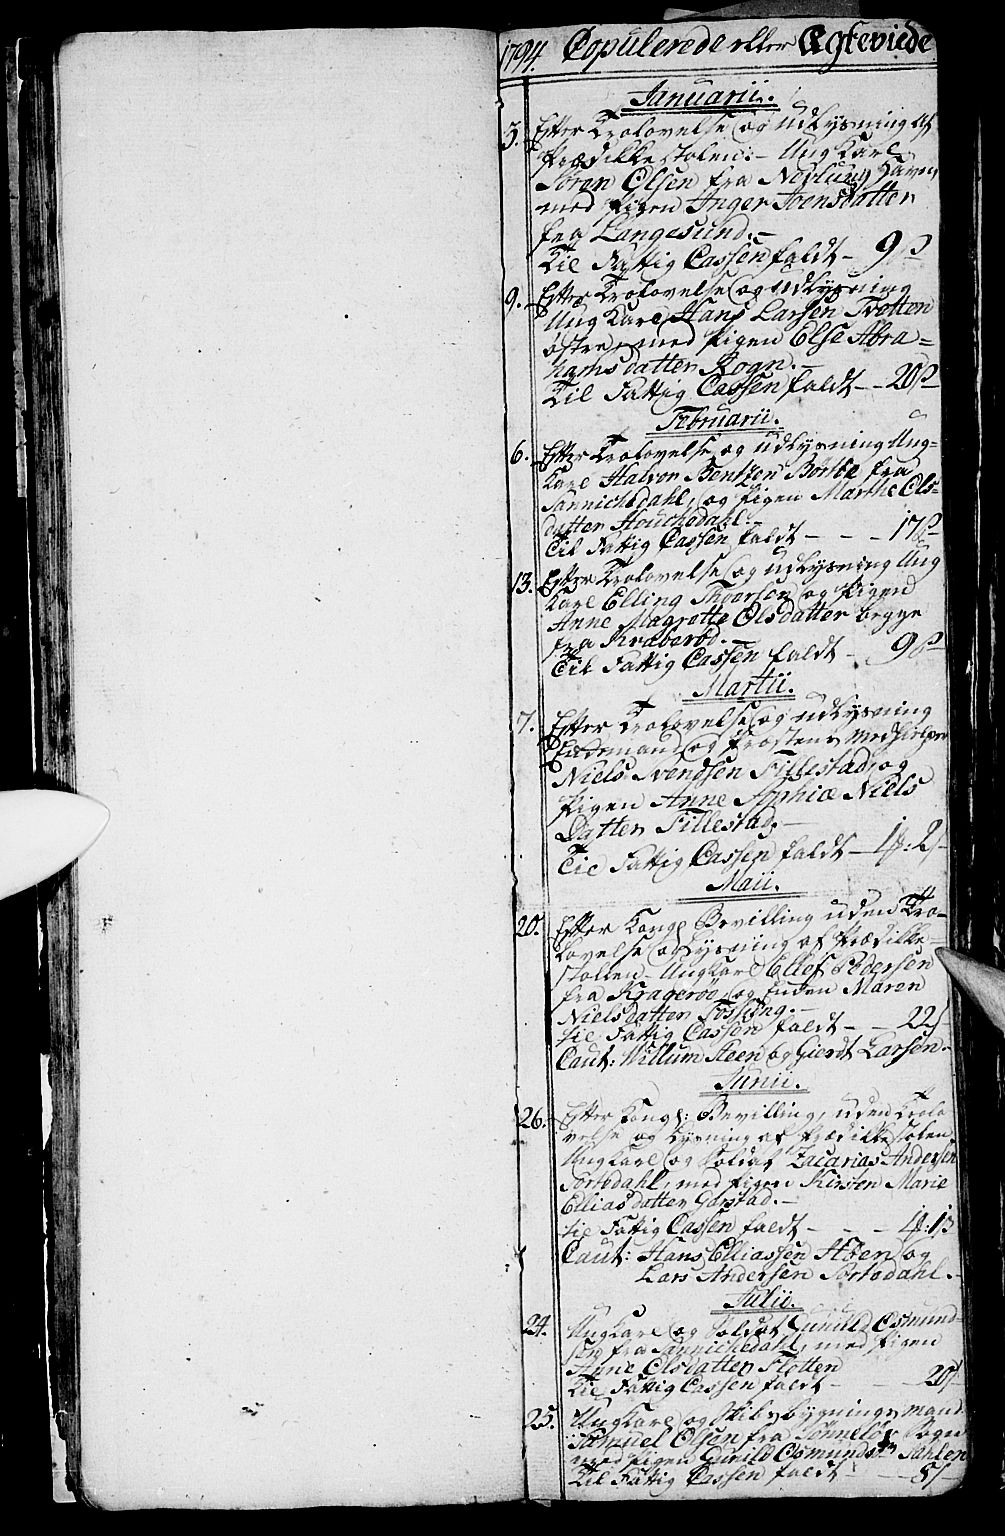 1794. Copulerede eller Ægteviede
Januarii.
3. Efter Trolovelse og udlysning af
Prædikkestolen: - Ung Karl
Søren Olsen fra Nevlung Havn,
med Pigen Inger Joensdatter
fra Langesund. -
Til Fattig Cassen faldt - 9 ß
9. Efter Trolovelse og udlysning
Ung Karl Hans Larsen Tvetten
østre, med Pigen Else Abra=
hamsdatter Rogn. -
Til Fattig Cassen faldt - - 20 ß
Februarii.
6. Efter Trolovelse og udlysning Ung=
Karl Halvor Bentzen Borsbe fra
Sannichedahl, og Pigen Marthe Ols=
datter Houchedahl. -
Til Fattig Cassen faldt - - - 17 ß
13. Efter Trolovelse og udlysning Ung
Karl Elling Thorson og Pigen
Anne Magrette Olsdatter begge
fra Kraberød. -
Til Fattig Cassen faldt - 9 ß
Martii.
7. Efter Trolovelse og udlysning
Enkemand og Prostens Medhielper
Niels Svendsen Fillestad, og
Pigen Anne Sophiæ Niels
Datter Fillestad. -
Til Fattig Cassen faldt - 1 : 2 ß
Maii.
20. Efter Konge Bevilling uden Tro=
lovelse og Lysning af Prædikke=
stolen - Ungkarl Ellef Pedersen
fra Kragerøe, og Enken Maren
Nielsdatter Fossing. -
til Fattig Cassen faldt - - 22 ß
Caut: Willum Steen og Gierdt Larsen. -
Junii.
26. Efter Kongl: Bevilling, uden Trolo
velse og Lysning af Prædikkestolen,
Ungkarl og Soldat Zacarias Andersen
Sortedahl, med Pigen Kirsten Marie
Elliasdatter Garstad. -
til Fattig Cassen faldt - - - 1 : 1 ß
Caut: Hans Elliassen Aaen og
Lars Andersen Sortedahl. -
Julii.
24. Ungkarl og Soldat Gunild Osmund=
sen fra Sannichedahl, med Pigen
Anne Olsdatter Flotten
Til Fattig Cassen faldt - - - 20 ß
25. Ungkarl og Skibsbygnings mand
Samuel Olsen fra Tønneløv Sogn
med Pigen Gunild Osmundsdtr Dahlen
Til Fattig Cassen faldt - - - 8 ß